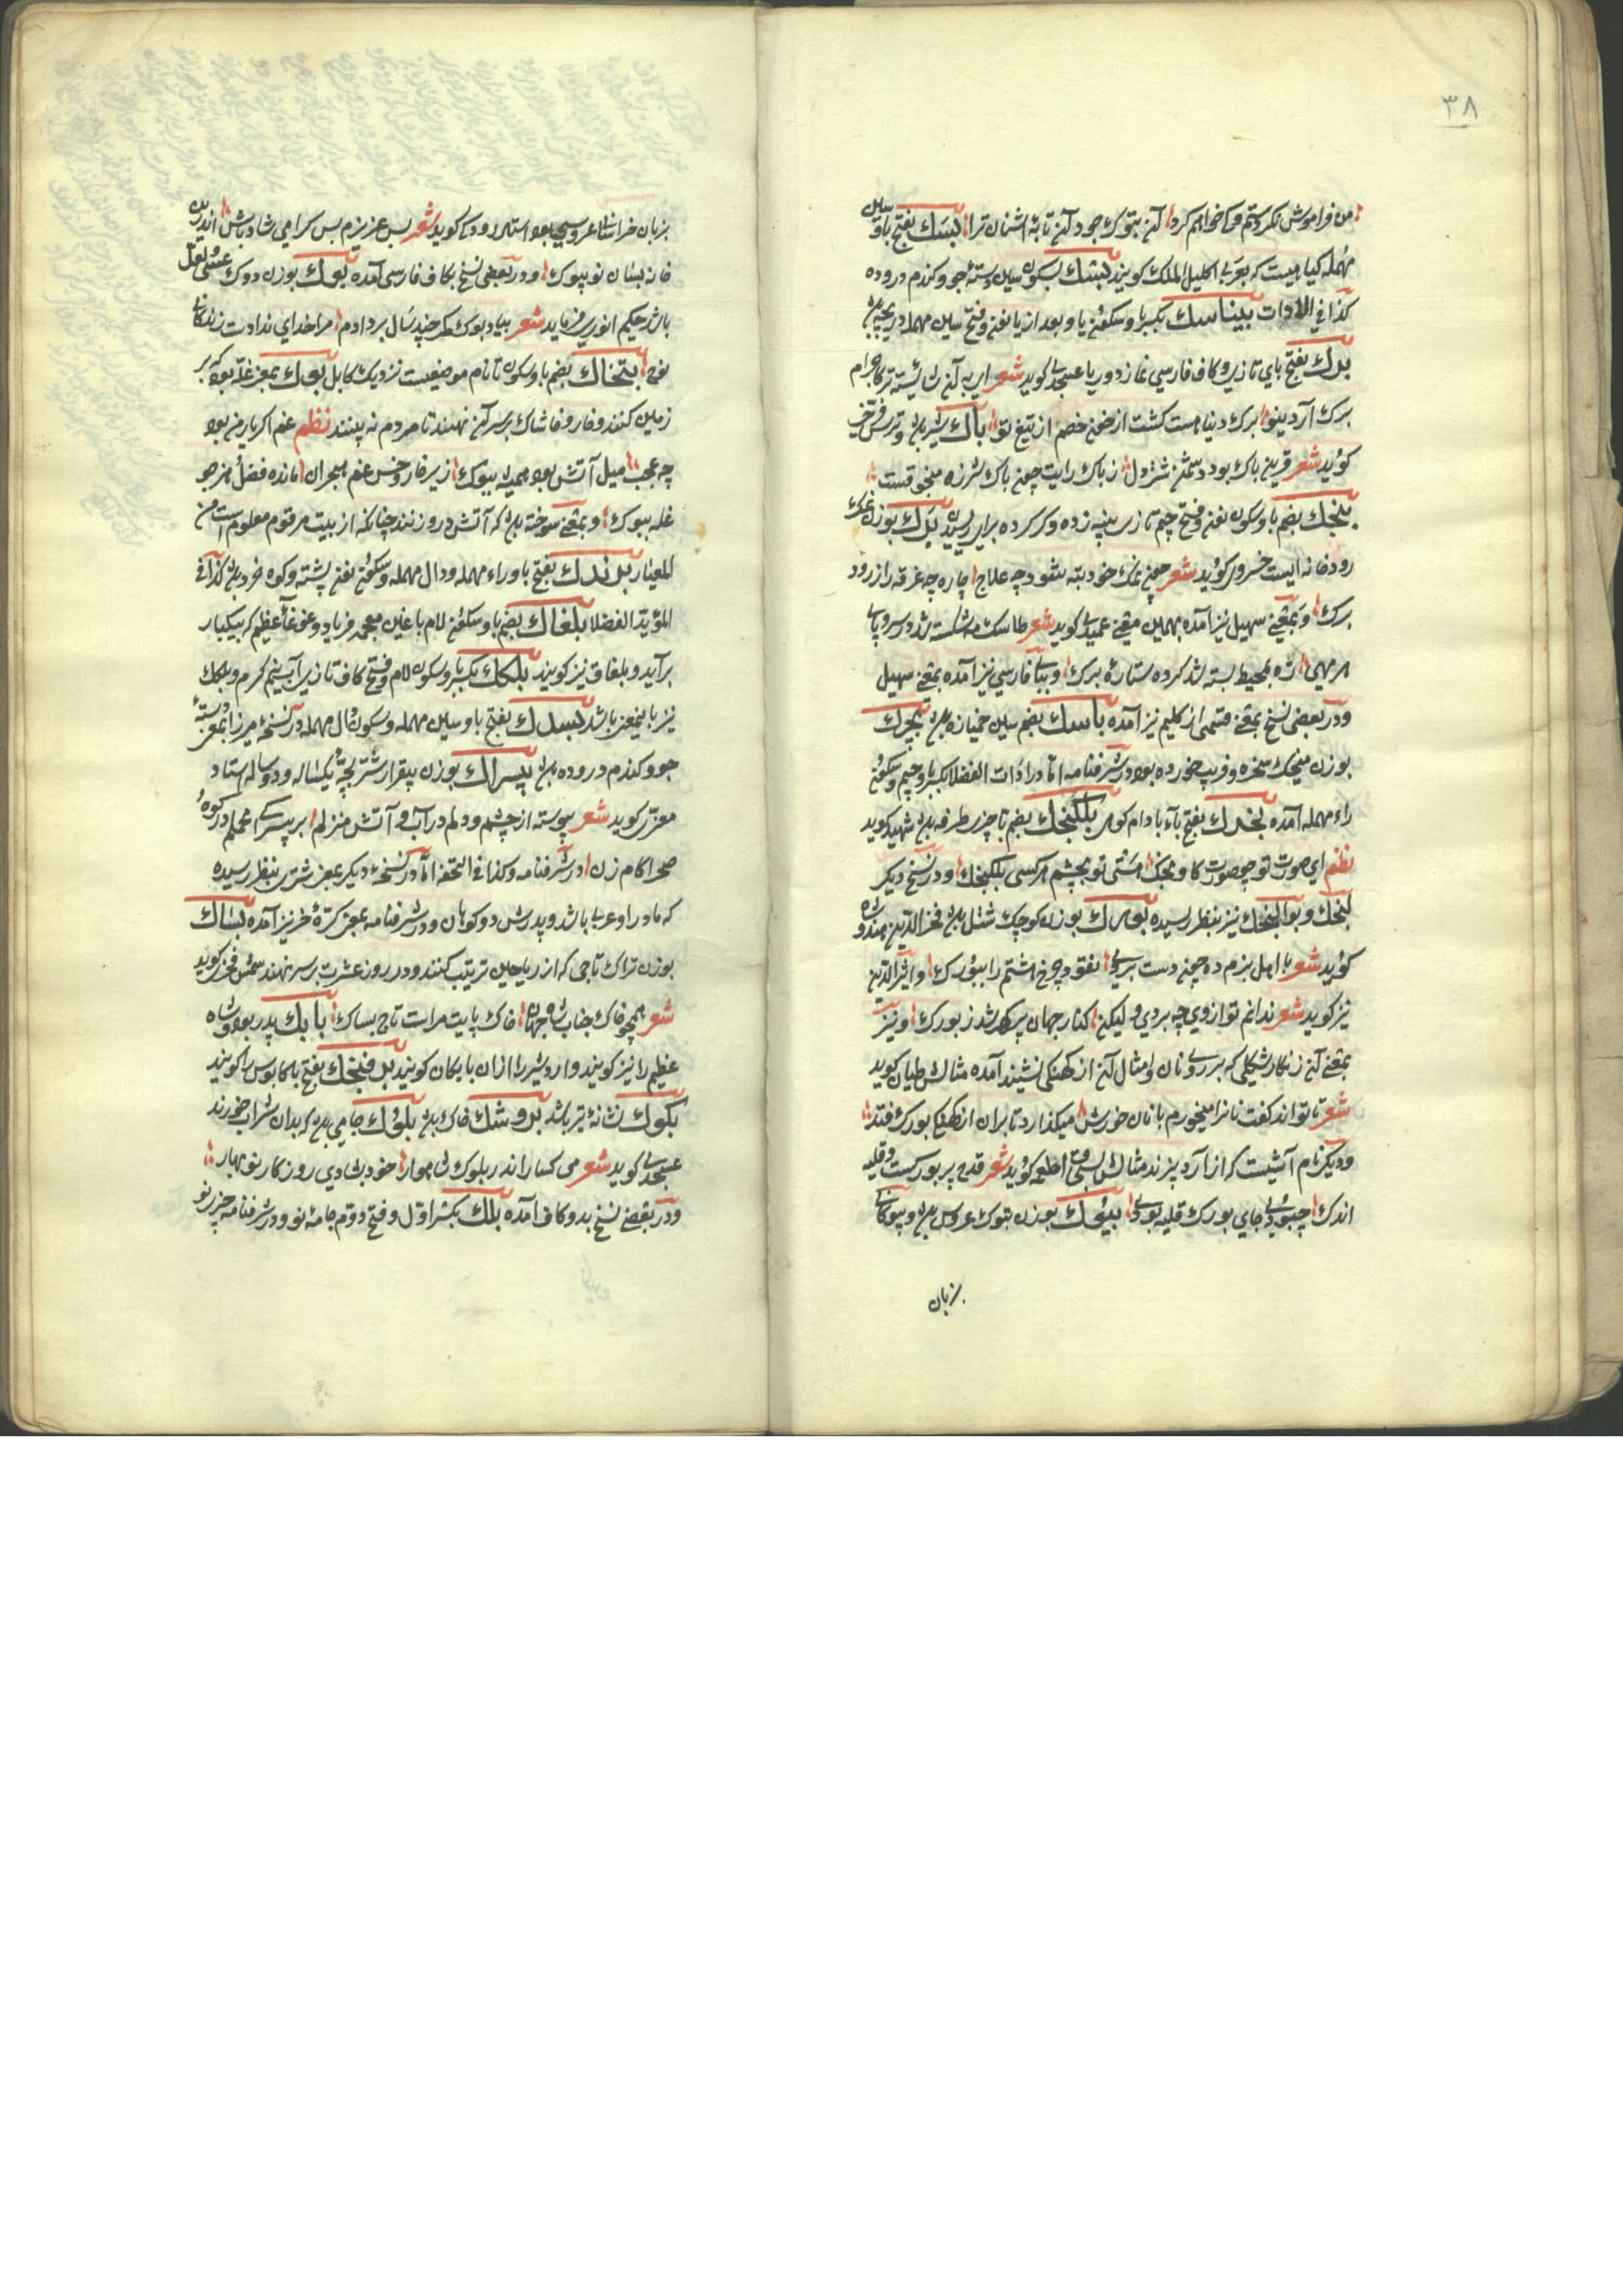 ۳۸
من فراموش نکردستم و نخواهم کرد آن تبوک جو د آن تابهٔ اشنان ترا بسک بفتح با و سین
مهمله گیاهیست که بعربی اکلیل الملک گویند بشک بسکون سین دستهٔ جو و گندم دروده
کذا فی الادات بیناسک بکسر با و سکون یا و بعد از یا نون و فتح سین مهمله دریچه بود
برک بفتح بای تازی و کاف فارسی غاز دوریا عسجدی گوید شعر
برک آرد بینوا برک دنیا هست گشت از خون خصم از تیغ تو باک شیر بود و ترس
گوید شعر قرین باک بود دشمن شتر دل ز باک رایت چون باک شرزه منجوقست
بنجک بضم با و سکون نون و فتح جیم تازی پنبه زده و گرد کرده برای ریسیدن برک بوزن
رودخانه ایست خسروی گوید شعر چون نمک خود تبه شود چه علاج چاره چه غرقه را ز رود
برک و بمعنی سهیل نیز آمده بهمین معنی عمید گوید شعر طاسک مه شکسته شد در سر و پای
هر مهی شه بمحیط بسته شد کرده ستارهٔ برک و ببای فارسی نیز آمده بمعنی سهیل
و در بعضی نسخ بمعنی قسمی از گلیم نیز آمده باسک بضم سین خمیازه بود بجرک
بوزن میخک سخره و فریب خورده بود در شرفنامه اما در ادات الفضلا بکسر با و جیم و سکون
راء مهمله آمده بخرک بفتح با بادام کوهی بلکنجک بضم با چیزی طرفه بود شهید گوید
نظم ای صورت تو چو صورت کاونجک هستی تو بچشم هر کسی بلکنجک و در نسخ دیگر
لنجک و بوالنجک نیز بنظر رسیده بورک بوزن کوچک شتل بود فخر الدین هندوشاه
گوید شعر با اهل بزم ده چو دست بری نقود چرخ اشتم را ببورک و اثیر الدین
نیز گوید شعر ندانم تو از وی چه بردی ولیکن کنار جهان پر گهر شد ز بورک و نیز
بمعنی آن زنگار شکلی که بر روی نان و امثال آن از کهنگی نشیند آمده مثالش طیان گوید
شعر تا تواند گفت نان را میخورم با نان خورش میگذارد تا بر آن از کهنگی بورک فتد
و دیگر نام آشیست که از آرد پزند مثالش بسحق اطعمه گوید شعر قدح پر بورکست و قلیه
اندک چبودی جای بورک قلیه بودی بیوک بوزن تبوک عروس بود و بیوگانی
بزبان
بزبان خراسان عروسی بود استاد رودکی گوید شعر بس عزیزم بس گرامی شاد باش اندرین
خانه بسان نو بیوک و در بعضی نسخ بکاف فارسی آمده بوک بوزن دوک عسی و لعل
باشد حکیم انوری فرماید شعر بیاد بوک مگر چند سال بر دادم مرا خدای ندادست زندگانی
نوح بتخاک بضم با و سکون تا نام موضعیست نزدیک کابل بوک بمعنی غله بود که بر
زمین کنند و خار و خاشاک بر سر آن نهند تا مردم نه بینند نظم غم اگر یار من بود
چه عجب میل آتش بود همیشه ببوک زیر خار و خس غم هجران مانده فضل هنر چو
غله ببوک و بمعنی سوخته بود که آتش در و زنند چنانکه از بیت مرقوم معلوم است من
المعیار برندک بفتح با و راء مهمله و دال مهمله و سکون نون پشته و کوه خرد بود کذا فی
المؤید الفضلا بلغاک بضم با و سکون لام با غین معجمه فریاد و غوغاء عظیم که بیکبار
برآید و بلغاق نیز گویند بلکک بکسر با و سکون لام و فتح کاف تازی آب نیم گرم و بلک
نیز باینمعنی باشد بسدک بفتح با و سین مهمله و سکون دال مهمله در نسخهٔ میرزا بمعنی دستهٔ
جو و گندم دروده بود بیسراک بوزن بیقرار شتر بچهٔ یکساله و دو ساله استاد
معزی گوید شعر پیوسته از چشم و دلم در آب و آتش منزلم بر بیسراک محملم در کوه و
صحرا گام زن در شرفنامه و کذا فی التحفه اما در نسخهٔ دیگر بمعنی شتری بنظر رسیده
که مادر او عربی باشد و پدرش دو کوهان و در شرفنامه بمعنی کرهٔ خر نیز آمده بساک
بوزن تراک تاجی که از ریاحین ترتیب کنند و در روز عشرت بر سر نهند شمس فخری گوید
شعر همچو خاک جناب شاه جهان خاک پایت مراست تاج بساک بابک پدر بود و شاه
عظیم را نیز گویند و اردشیر را ازان بابکان گویند برفنجک بفتح با کابوس را گویند
بکوک نشانهٔ تیر باشد بروشک خاک بود بلوک جامی بود که بدان شراب خورند
عسجدی گوید شعر می گسار اندر بلوک شاهوار خود بشادی روزگار نوبهار
و در بعضی نسخ بدو کاف آمده بلک بکسر اول و فتح دوم جامهٔ نو و در شرفنامه چیز نو